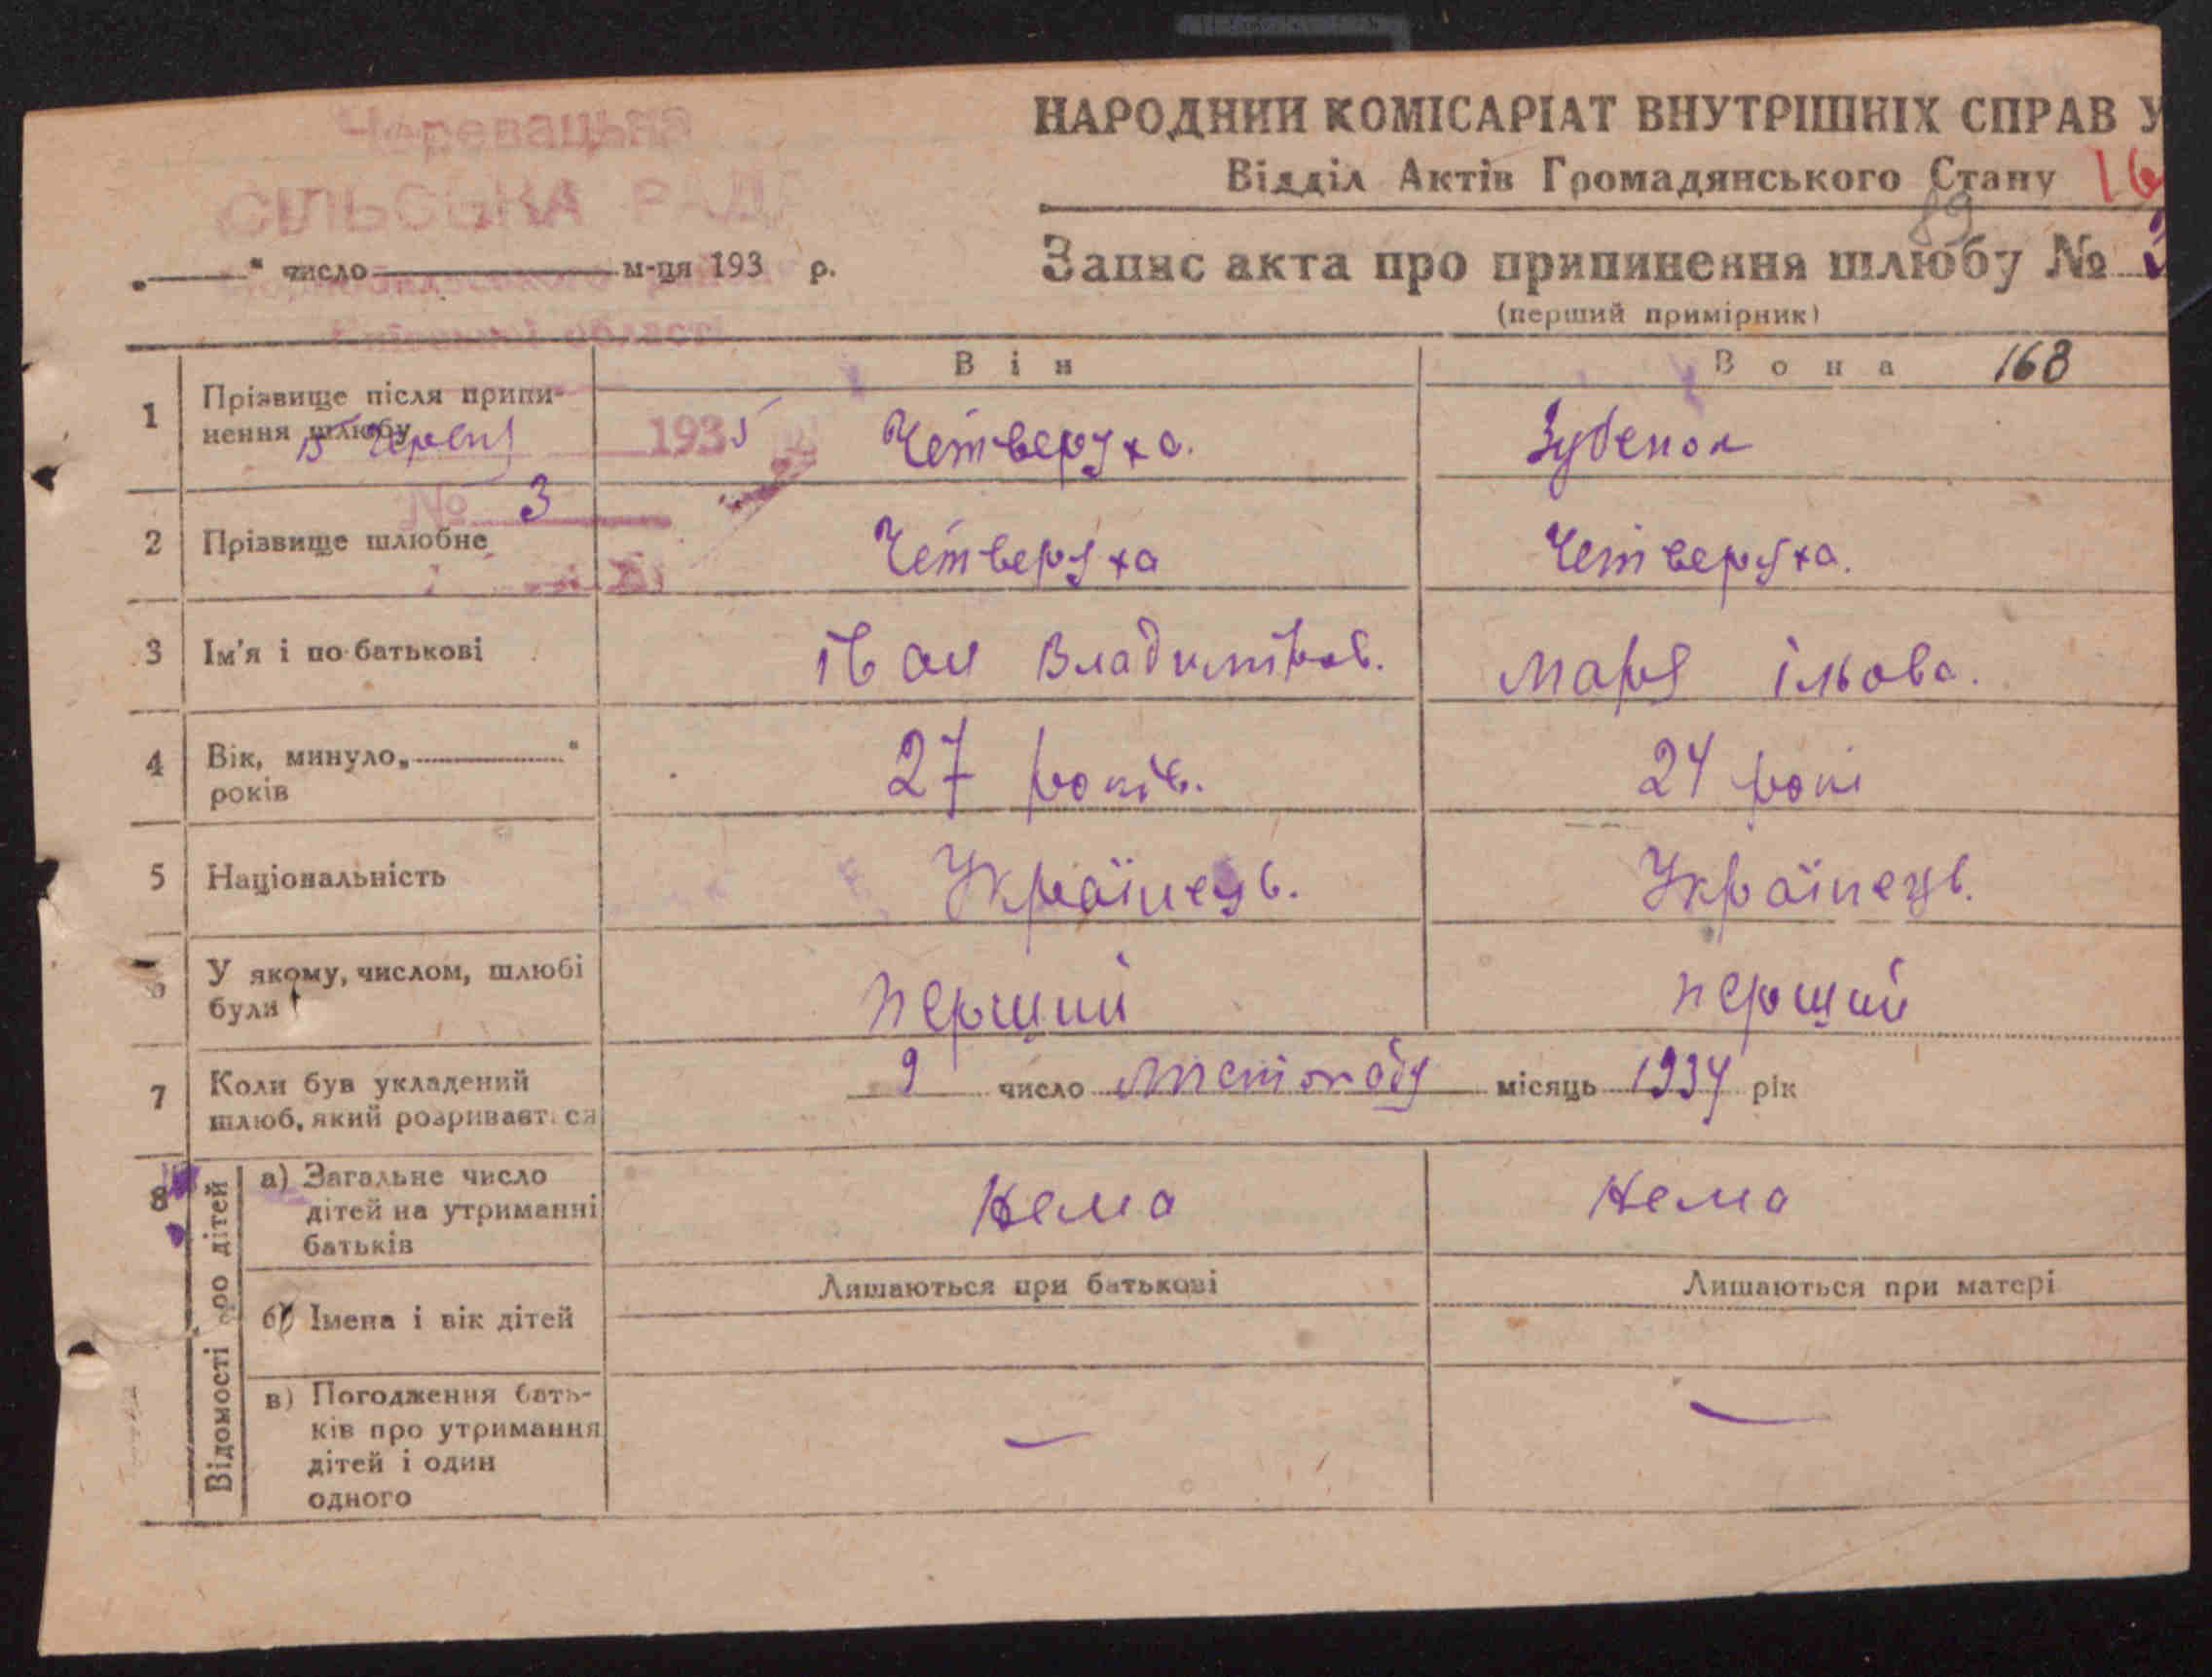 Черевацька
СІЛЬСЬКА РАДА
Чорнобильського району
Київської області
НАРОДНИЙ КОМІСАРІАТ ВНУТРІШНІХ СПРАВ У
Відділ Актів Громадянського Стану 16
89
„ “ число м-ця 193 р.
Запис акта про припинення шлюбу №
(перший примірник)
Він
Вона 168
1 Прізвище після припи-
нення шлюбу
15 червня 1935
Четверуха.
Зубенок
№ 3
2 Прізвище шлюбне
Четверуха
Четверуха.
3 Ім'я і по батькові
Іван Владиміров.
Марія Ільова.
4 Вік, минуло „ “
років
27 років.
24 рокі
5 Національність
Українець.
Українець.
6 У якому, числом, шлюбі
були
перший
перший
7 Коли був укладений
шлюб, який розривається
9 число листопаду місяць 1934 рік
8 Відомості про дітей
а) Загальне число
дітей на утриманні
батьків
Нема
Нема
б) Імена і вік дітей
Лишаються при батькові
Лишаються при матері
в) Погодження бать-
ків про утримання
дітей і один
одного
—
—